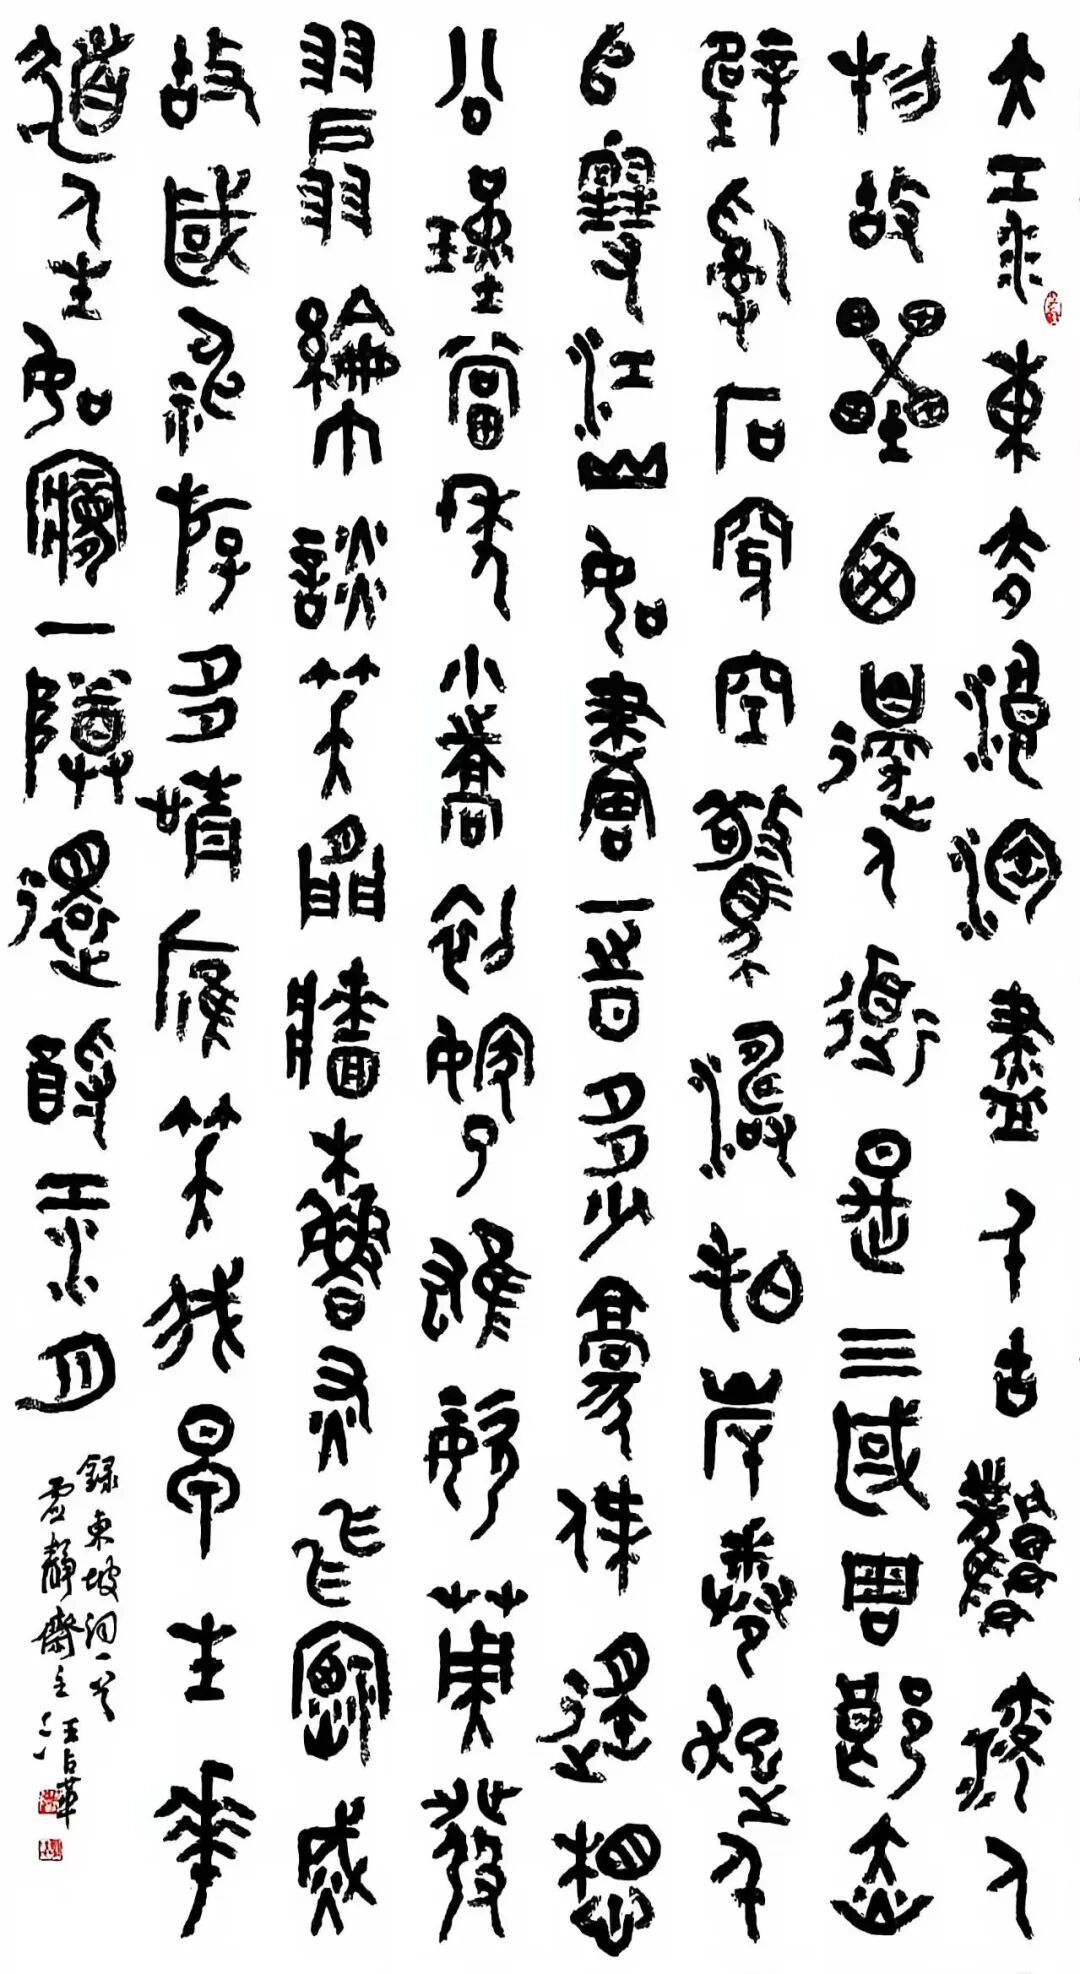 大江東去浪淘盡千古風流人
物故壘西邊人道是三國周郎赤
壁亂石穿空驚濤拍岸捲起千
堆雪江山如畫一時多少豪傑遙想
公瑾當年小喬初嫁了雄姿英發
羽扇綸巾談笑間檣櫓灰飛煙滅
故國神游多情應笑我早生華
髮人生如夢一尊還酹江月
錄東坡詞一首
虛靜齋主汪占革